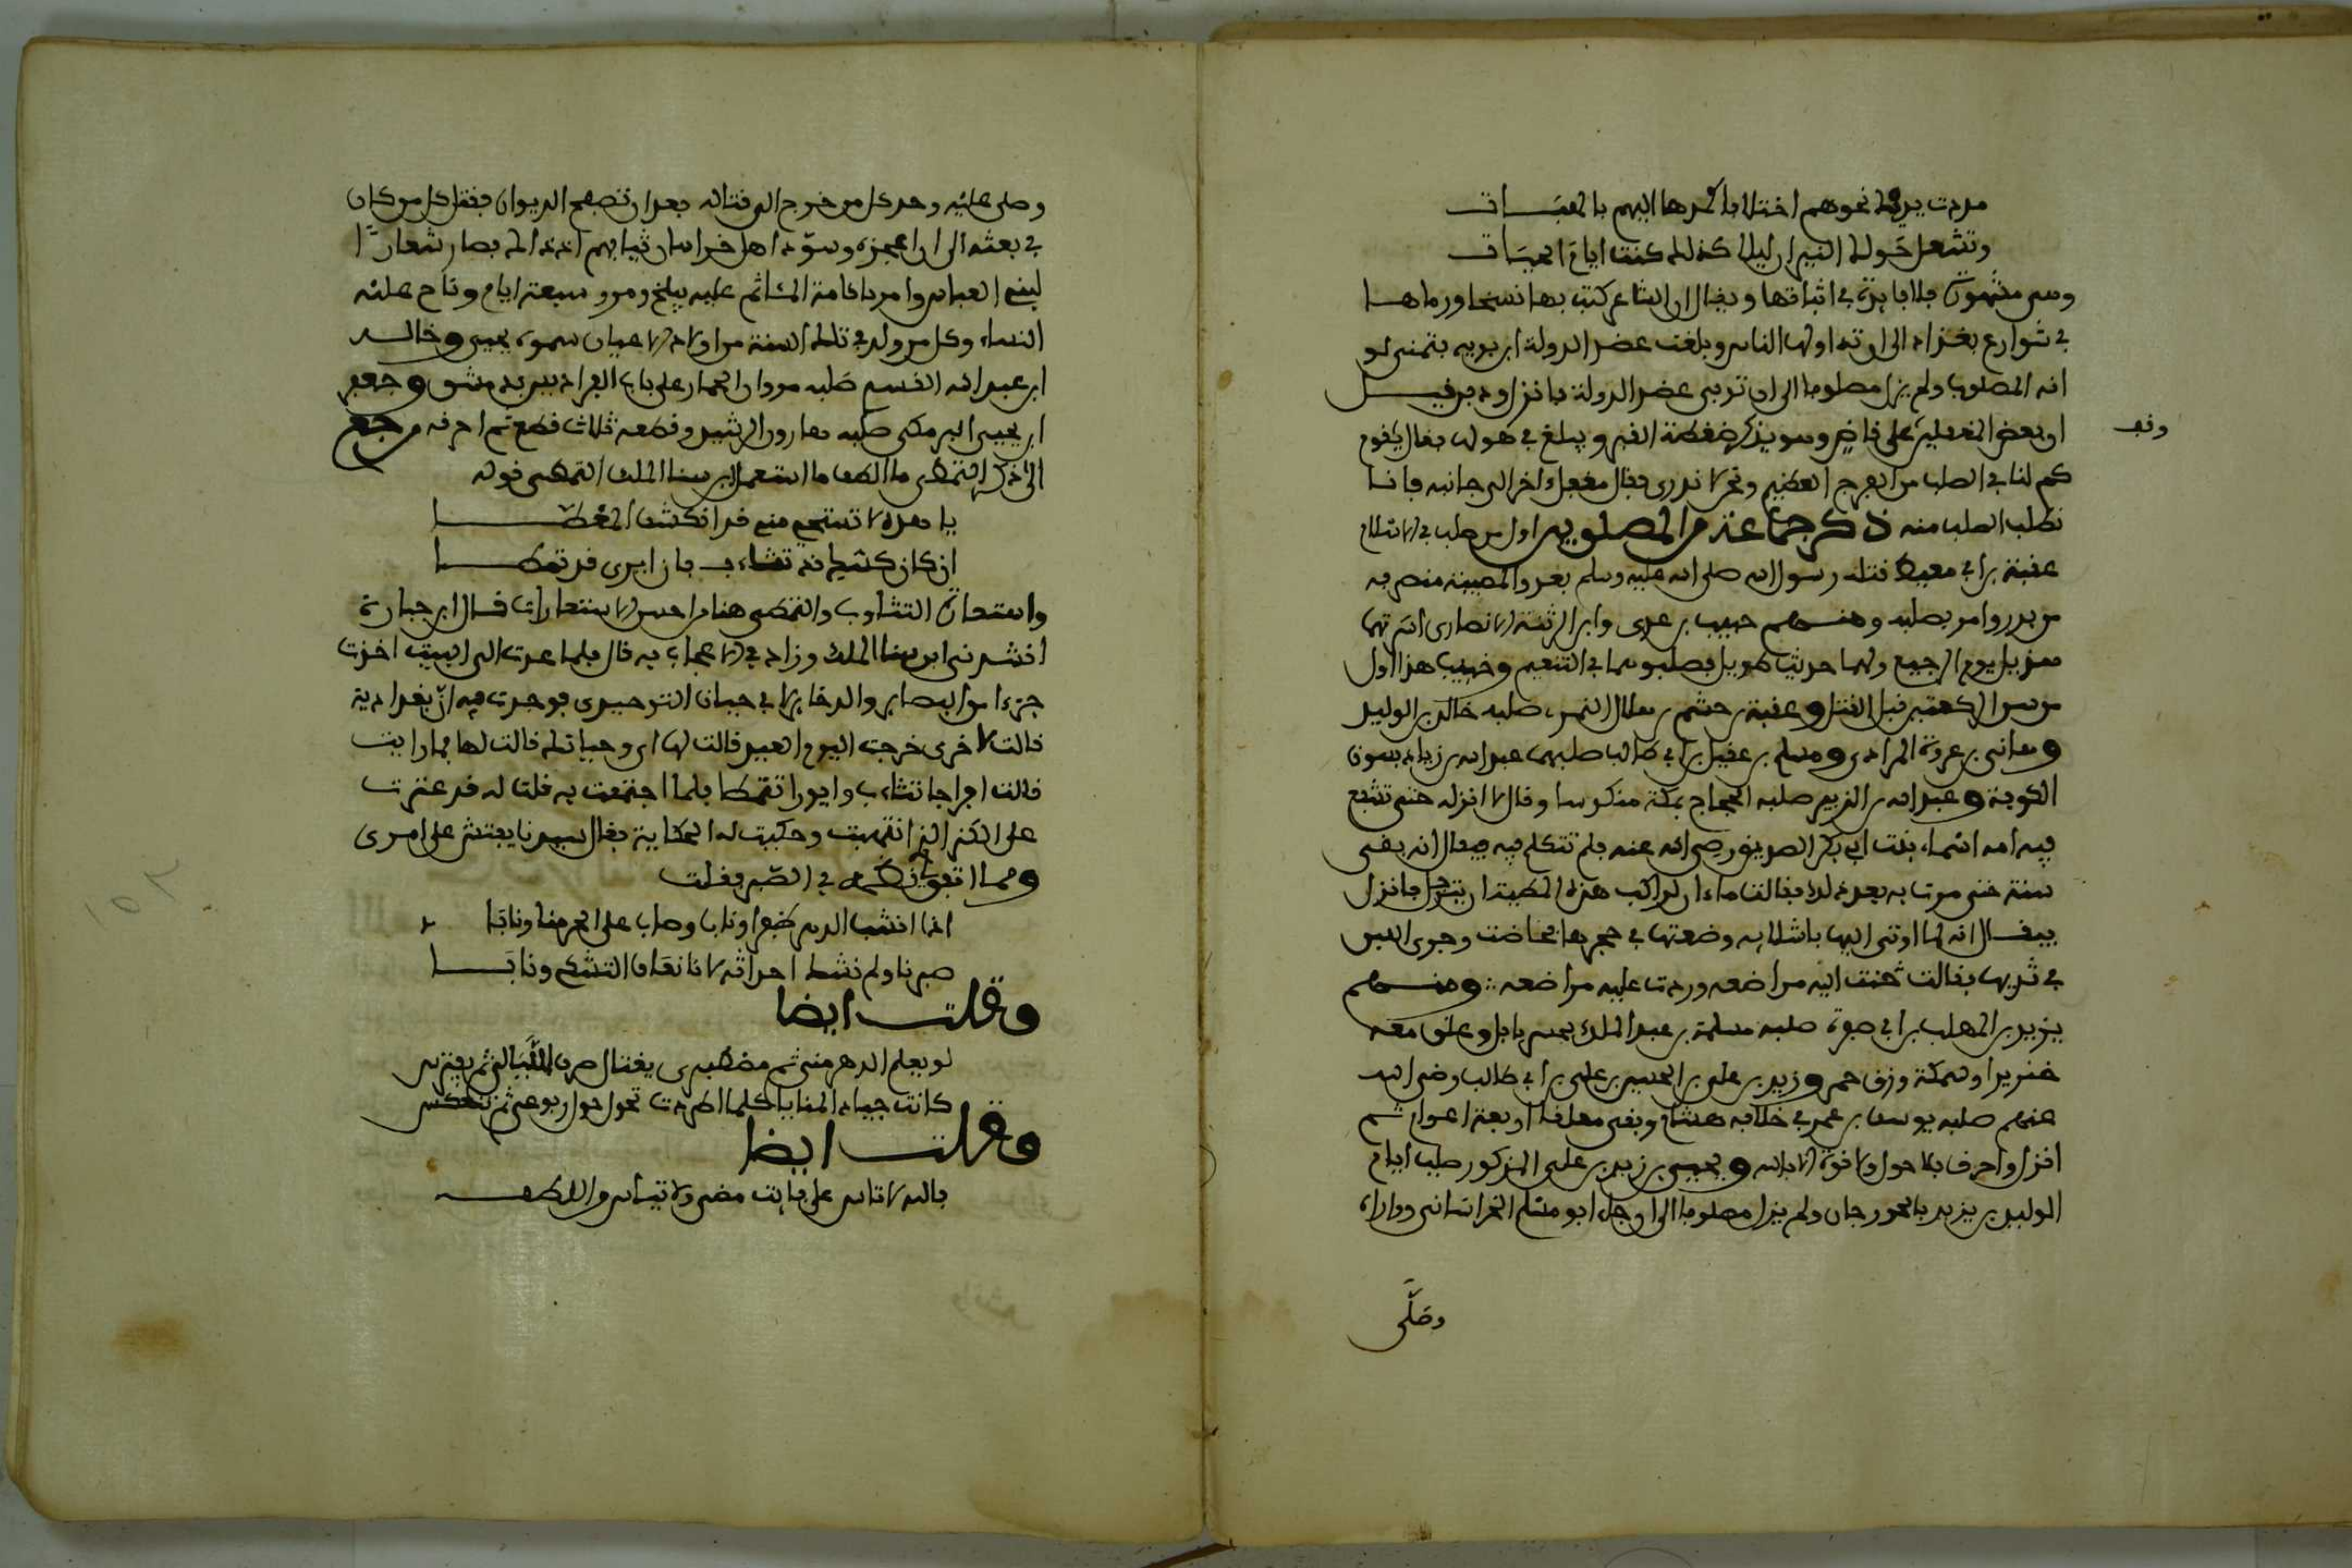 مددت يديك نحوهم اختلابا كمدها اليهم بالهبات
وتشعل حولك النيران ليلا كذلك كنت ايام الحيات
وهي مشهورة فلا فايدة في اثباتها ويقال ان الشاعر كتب بها نسخا ورماها
في شوارع بغداد الى ان تداولها الناس وبلغت عضد الدولة ابن بويه فتمنى لو
انه المصلوب ولم يزل مصلوبا الى ان توفي عضد الدولة فانزل ودفن قيل
وقف
او بعض المغفلين على قاض وهو يذكر ضغطة القبر ويبلغ في هولها فقال يا قوم
كم لنا في الصلب من الفرج العظيم ونحن لا ندري فقال مغفل اخر الى جانبه فانا
نطلب الصلب منه ذكر جماعة من المصلوبين اول من صلب في الاسلام
عقبة بن ابي معيط قتله رسول الله صلى الله عليه وسلم بعد والمصيبة منصرفه
من بدر وامر بصلبه ومنهم حبيب بن عدي وابن الدثنة الانصاري اسرتهما
هذيل يوم الرجيع ولهما حديث طويل فصلبوهما في التنعيم وخبيب هذا اول
من سن الركعتين قبل القتل وعقبة بن حشم بن هلال النمري صلبه خالد بن الوليد
وهاني بن عروة المرادي ومسلم بن عقيل بن ابي طالب صلبهما عبد الله بن زياد بسوق
الكوفة وعبد الله بن الزبير صلبه الحجاج بمكة منكوسا وقال لا انزله حتى تشفع
فيه امه اسماء بنت ابي بكر الصديق رضي الله عنه فلم تتكلم فيه فيقال انه بقي
سنة حتى مرت به بعد ذلك فقالت اما ان لراكب هذه المطية ان يترجل فانزل
فيقال انه لما اوتي اليها باشلايه وضعتها في حجرها فحاضت وجرى اللبن
في ثديها فقالت حنت اليه مراضعه ودرت عليه مراضعه ∴ ومنهم
يزيد بن المهلب بن ابي صفرة صلبه مسلمة بن عبد الملك بجسر بابل وعلق معه
خنزيرا وسمكة وزق خمر وزيد بن علي بن الحسين بن علي بن ابي طالب رضي الله
عنهم صلبه يوسف بن عمر في خلافة هشام وبقي معلقا اربعة اعوام ثم
انزل واحرق فلا حول ولا قوة الا بالله ويحيى بن زيد بن علي المذكور صلب ايام
الوليد بن يزيد بالجوزجان ولم يزل مصلوبا الى ان وجل ابو مسلم الخراساني وواراه
وصلى
وصلى عليه وحد كل من خرج الى قتاله بعد ان تصفح الديوان فقتل كل من كان
في بعثه الى ان اعجزه وسود اهل خراسان ثيابهم اذ ذاك فصار شعارا
لبني العباس وامر باقامة الماتم عليه ببلخ ومرو سبعة ايام وناح عليه
النساء وكل من ولد في تلك السنة من اولاد الاعيان سموه يحيى وخالد
ابن عبد الله القسري صلبه مروان الحمار على باب الفراديس بدمشق وجعفر
ابن يحيى البرمكي صلبه هارون الرشيد وقطعه ثلاث قطع ثم احرقه مرجع
الى ذكر التمطي ما الطف ما استعمل ابن سنا الملك التمطي قوله
يا هذه لا تستحي مني قد انكشف المغطا
ان كان كشك قد تثاءب فان ايري قد تمطا
واستعارة التثاوب والتمطي هنا من احسن الاستعارات قال ابن جبارة
انشدني ابن سنا الملك وزاد في الاعجاب به قال فلما عدت الى البيت اخذت
جزءا من البصاير والدخاير لابي حيان التوحيدي فوجدت فيه ان بغدادية
قالت لاخرى خرجت اليوم العيد قالت لها اي وحياتك قالت لها فما رايت
قالت احراجا تتثاءب وايورا تتمطا فلما اجتمعت به قلت له قد عثرت
على الكنز الذي انتهبت وحكيت له الحكاية فقال سيدنا يفتش على امري
ومما اتفق لي نظمه في الصبر فقلت
اذا انشب الدهر ظفرا ونابا وصاب على الحر منا ونابا
صبرنا ولم نشك احداثه لانا نعاف التشكي ونابا
وقلت ايضا
لو يعلم الدهر مني ثم مصطبري يغتال صرف الليالي ثم يفترس
كانت جياد المنايا كلما اطردت تحول حول ربوعي ثم تنعكس
وقلت ايضا
بالله لا تاس على فايت مضى ولا تياس من اللطف